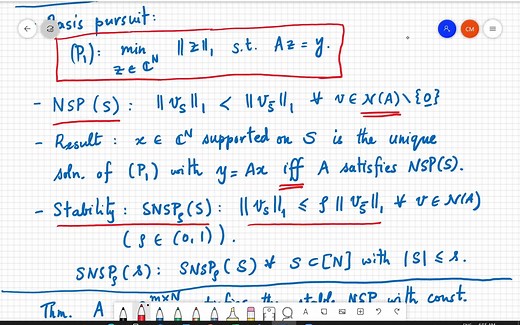 Basis pursuit:
(P₁): min ‖z‖₁ s.t. Az = y.
z ∈ ℂᴺ
- NSP(S): ‖v_S‖₁ < ‖v_S̄‖₁ ∀ v ∈ N(A)\{0}
- Result: x ∈ ℂᴺ supported on S is the unique
soln. of (P₁) with y = Ax iff A satisfies NSP(S).
- Stability: SNSP_ρ(S): ‖v_S‖₁ ≤ ρ‖v_S̄‖₁ ∀ v ∈ N(A)
(ρ ∈ (0,1)).
SNSP_ρ(s): SNSP_ρ(S) ∀ S ⊂ [N] with |S| ≤ s.
Thm. A NSP with const.
CM